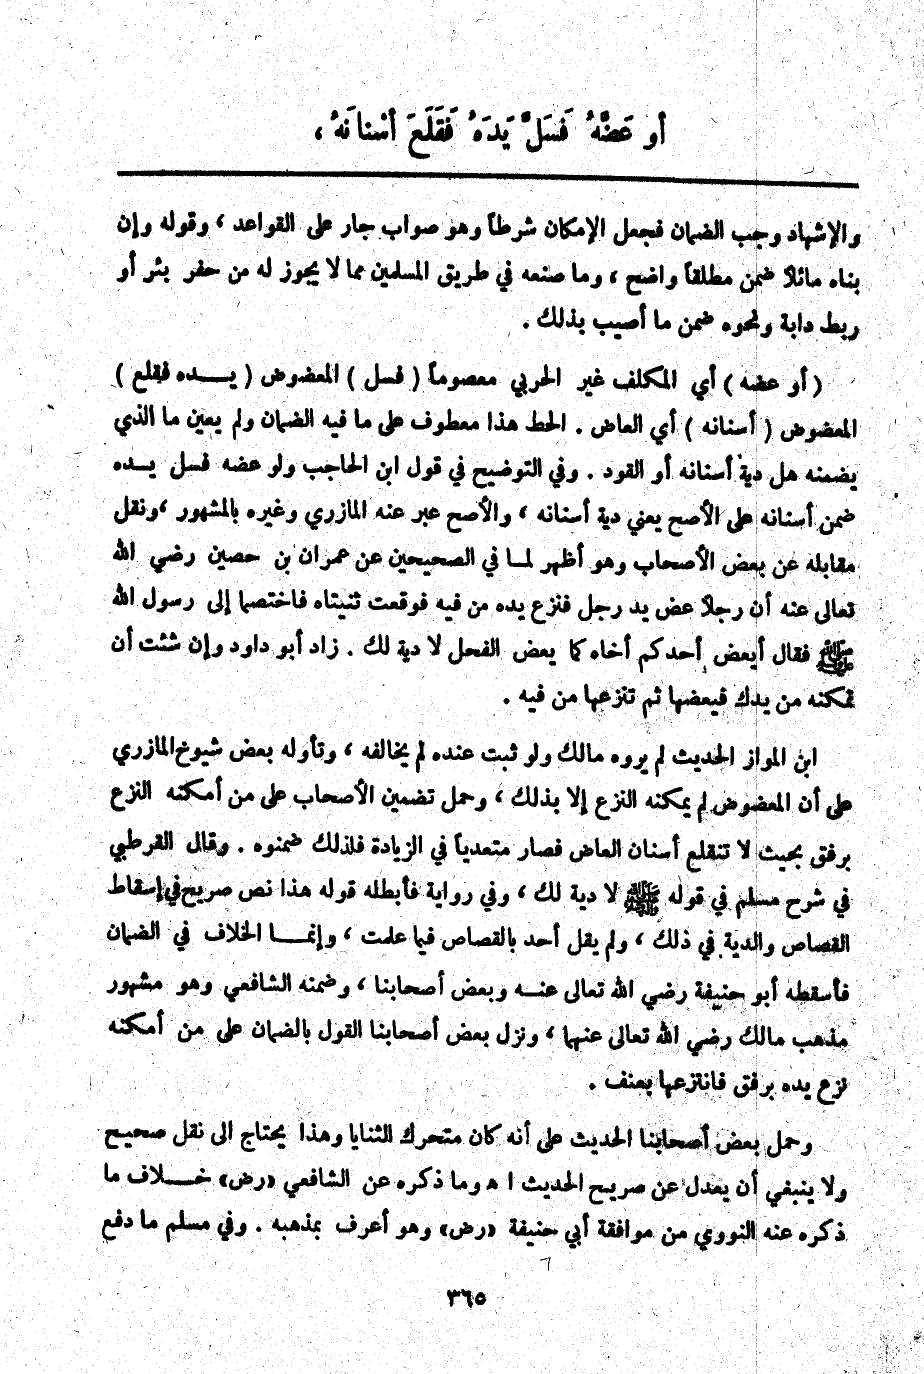 أو عَضَّهُ فَسَلَّ يَدَهُ فَقَلَعَ أسْنانَهُ ،
والإشهاد وجب الضمان فجعل الإمكان شرطاً وهو صواب جار على القواعد ، وقوله وإن
بناه مائلاً ضمن مطلقاً واضح ، وما صنعه في طريق المسلمين مما لا يجوز له من حفر بئر أو
ربط دابة ونحوه ضمن ما أصيب بذلك .
( أو عضه ) أي المكلف غير الحربي معصوماً ( فسل ) المعضوض ( يـــده فقلع )
المعضوض ( أسنانه ) أي العاض . الحط هذا معطوف على ما فيه الضمان ولم يعين ما الذي
يضمنه هل دية أسنانه أو القود . وفي التوضيح في قول ابن الحاجب ولو عضه فسل يـده
ضمن أسنانه على الأصح يعني دية أسنانه ، والأصح عبر عنه المازري وغيره بالمشهور ،ونقل
مقابله عن بعض الأصحاب وهو أظهر لمـا في الصحيحين عن عمران بن حصين رضي الله
تعالى عنه أن رجلاً عض يد رجل فنزع يده من فيه فوقعت ثنيتاه فاختصما إلى رسول الله
ﷺ فقال أيعض أحدكم أخاه كما يعض الفحل لا دية لك . زاد أبو داود وإن شئت أن
تمكنه من يدك فيعضها ثم تنزعها من فيه .
ابن المواز الحديث لم يروه مالك ولو ثبت عنده لم يخالفه ، وتأوله بعض شيوخ المازري
على أن المعضوض لم يمكنه النزع إلا بذلك ، وحمل تضمين الأصحاب على من أمكنه النزع
برفق بحيث لا تنقلع أسنان العاض فصار متعدياً في الزيادة فلذلك ضمنوه . وقال القرطبي
في شرح مسلم في قوله ﷺ لا دية لك ، وفي رواية فأبطله قوله هذا نص صريح في إسقاط
القصاص والدية في ذلك ، ولم يقل أحد بالقصاص فيما علمت ، وإنمـــا الخلاف في الضمان
فأسقطه أبو حنيفة رضي الله تعالى عنـه وبعض أصحابنا ، وضمنه الشافعي وهو مشهور
مذهب مالك رضي الله تعالى عنهما ، ونزل بعض أصحابنا القول بالضمان على من أمكنه
نزع يده برفق فانتزعها بعنف .
وحمل بعض أصحابنا الحديث على أنه كان متحرك الثنايا وهذا يحتاج الى نقل صحيح
ولا ينبغي أن يعدل عن صريح الحديث ا ه وما ذكره عن الشافعي «رض» خـــلاف ما
ذكره عنه النووي من موافقة أبي حنيفة «رض» وهو أعرف بمذهبه . وفي مسلم ما دفع
٣٦٥